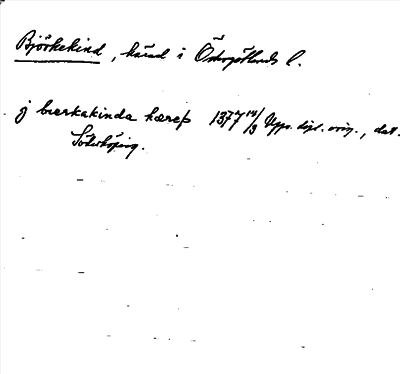 Björkekind, härad i Östergötlands l.
j bærkakinda hæreþ 1377 14/3 Upps. dipl. orig., dat.
Söderköping.